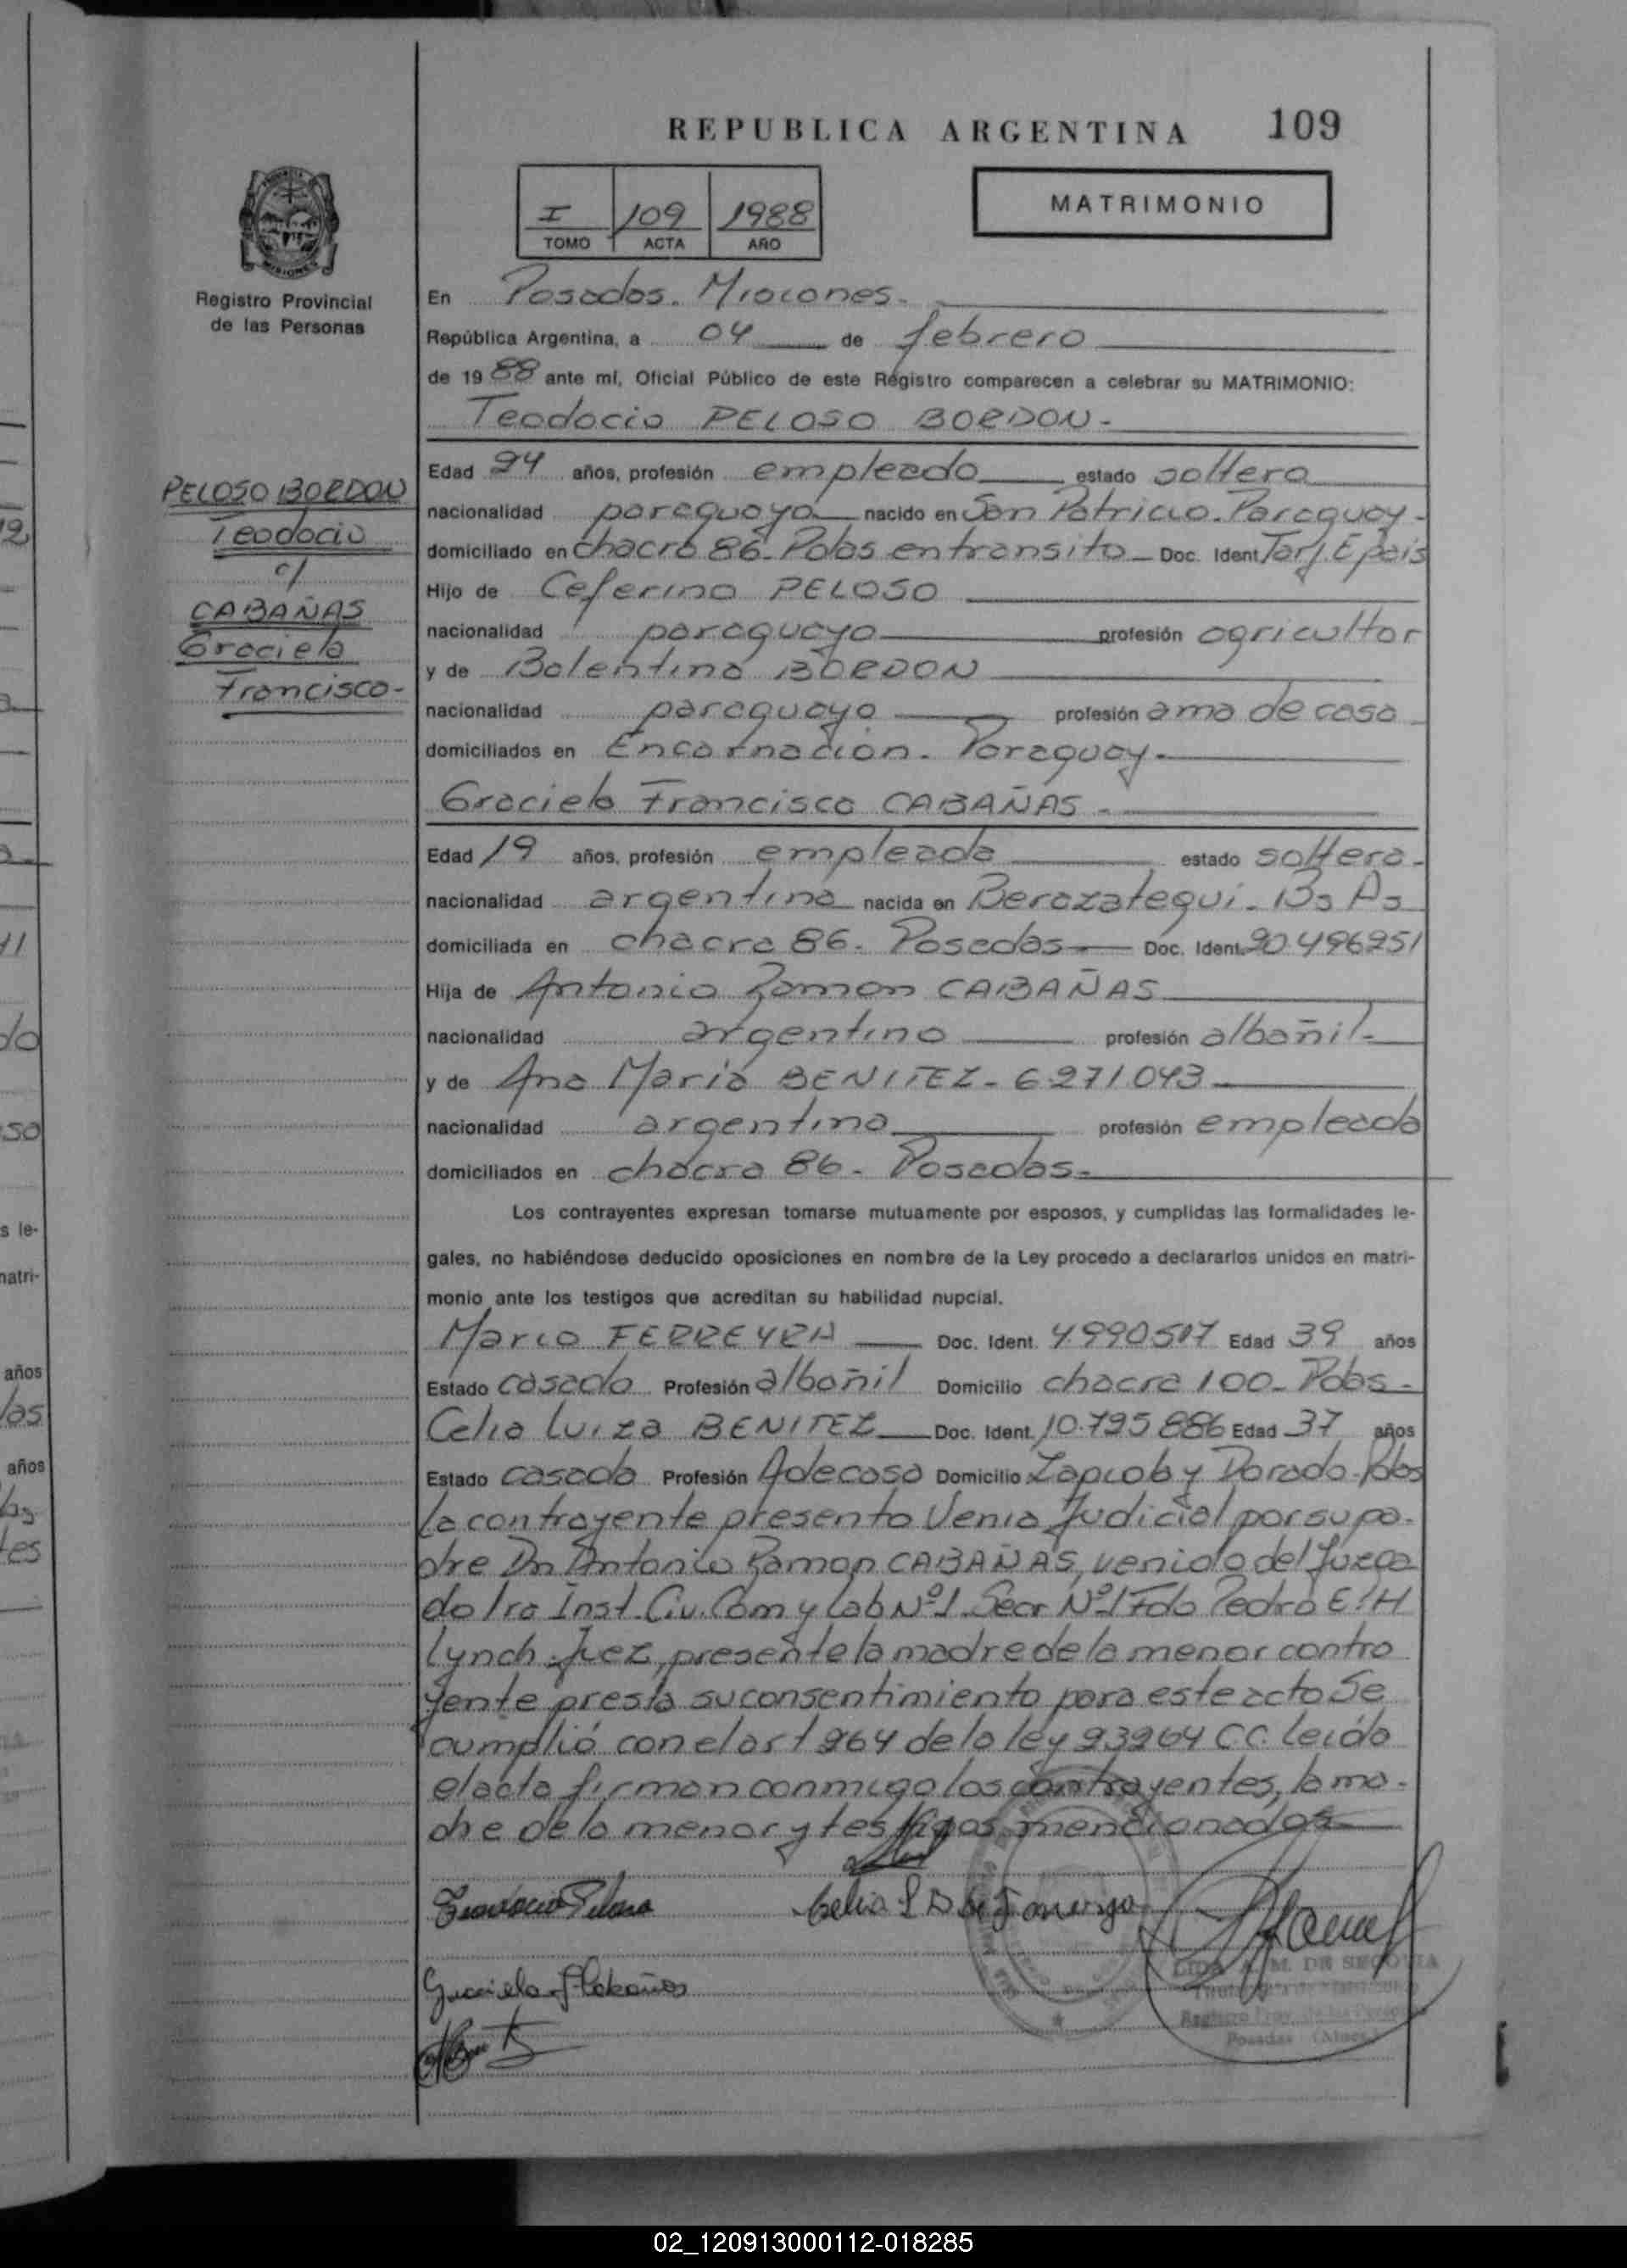 REPUBLICA ARGENTINA 109
I 109 1988
TOMO ACTA AÑO
MATRIMONIO
PROVINCIA
MISIONES
Registro Provincial
de las Personas
En Posadas. Misiones.
República Argentina, a 04 de febrero
de 1988 ante mí, Oficial Público de este Registro comparecen a celebrar su MATRIMONIO:
Teodocio PELOSO BORDON-
PELOSO BORDON
Teodocio
c/
CABAÑAS
Graciela
Francisca-
Edad 24 años, profesión empleado estado soltero
nacionalidad paraguaya nacido en San Patricio. Paraguay-
domiciliado en chacra 86. Pdas en transito - Doc. Ident Tarj. E pais
Hijo de Ceferino PELOSO
nacionalidad paraguaya profesión agricultor
y de Balentina BORDON
nacionalidad paraguaya profesión ama de casa
domiciliados en Encarnación. Paraguay.
Graciela Francisca CABAÑAS-
Edad 19 años, profesión empleada estado soltera-
nacionalidad argentina nacida en Berazategui. Bs As
domiciliada en chacra 86. Posadas Doc. Ident. 20.496251
Hija de Antonio Ramon CABAÑAS
nacionalidad argentino profesión albañil-
y de Ana Maria BENITEZ- 6271043
nacionalidad argentina profesión empleada
domiciliados en chacra 86- Posadas-
Los contrayentes expresan tomarse mutuamente por esposos, y cumplidas las formalidades le-
gales, no habiéndose deducido oposiciones en nombre de la Ley procedo a declararlos unidos en matri-
monio ante los testigos que acreditan su habilidad nupcial.
FERREYRA Doc. Ident. Edad 39 años
Estado casado Profesión albañil Domicilio chacra 100- Pdas-
Celia Luiza BENITEZ Doc. Ident. 10.795886 Edad 37 años
Estado casada Profesión Adecasa Domicilio y Dorado. Pdas
la contrayente presento Venia Judicial por su pa-
dre Dn Antonio Ramon CABAÑAS, venido del Juzga
do 1ra Inst. Civ. Com y Lab Nº1. Secr Nº1 Fdo Pedro E. H
Lynch. Juez, presente la madre de la menor contra
yente presta su consentimiento para este acto Se
cumplió con el art 264 de la ley 23264 CC. Leída
el acta firman conmigo los contrayentes, la ma-
dre de la menor y testigos mencionados
A. M. DE SEGOVIA
Posadas
02_120913000112-018285
años
años